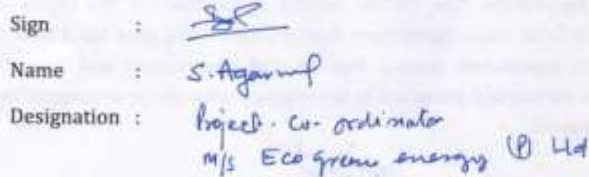 Sign :
Name : S. Agarwal
Designation : Project. Co-ordinator
M/s Eco Green energy (P) Ltd